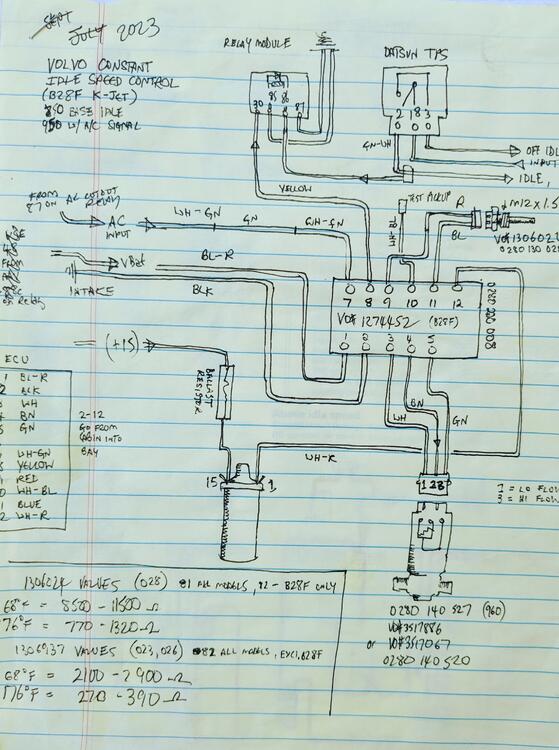 SEPT
JULY 2023
VOLVO CONSTANT
IDLE SPEED CONTROL
(B28F K-JET)
850 BASE IDLE
950 W/ A/C SIGNAL
RELAY MODULE
30 85 86 87
DATSUN TPS
2 18 3
GN-WH
OFF IDL
INPUT
IDLE,
YELLOW
TEST PICKUP
BL-WH
R
BL
M12 X 1.5
VO# 130602
0 280 130 02
FROM AC CUTOUT
87 ON RELAY
AC
INPUT
WH-GN
GN
WH-GN
FROM
Relay
VBat
INTAKE
BL-R
BLK
7 8 9 10 11 12
VO# 1274452 (B28F)
1 2 3 4 5
0 280 220 008
(+15)
BALLAST
RESISTOR
WH
BN
GN
WH-R
15
1
1 2 3
1 = LO FLOW
3 = HI FLOW
ECU
BL-R
BLK
WH
BN
GN
WH-GN
YELLOW
RED
WH-BL
BLUE
2 WH-R
2-12
GO FROM
CABIN INTO
BAY
0280 140 527 (960)
VO# 3517886
or VO# 3517067
0280 140 520
1306024 VALUES (028) 81 ALL MODELS, 82 - B28F ONLY
68°F = 8500 - 11500 Ω
176°F = 770 - 1320 Ω
1306937 VALUES (023, 026) 82 ALL MODELS, EXCL. B28F
68°F = 2100 - 2900 Ω
176°F = 270 - 390 Ω